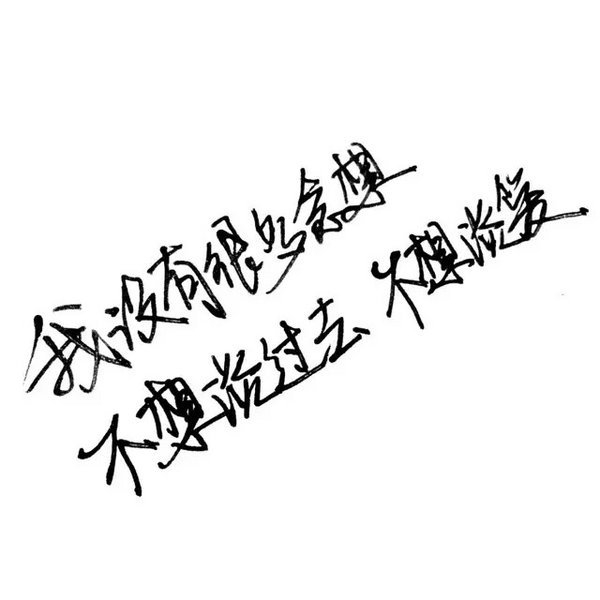 我没有很多念想
不想谈过去 不想谈爱